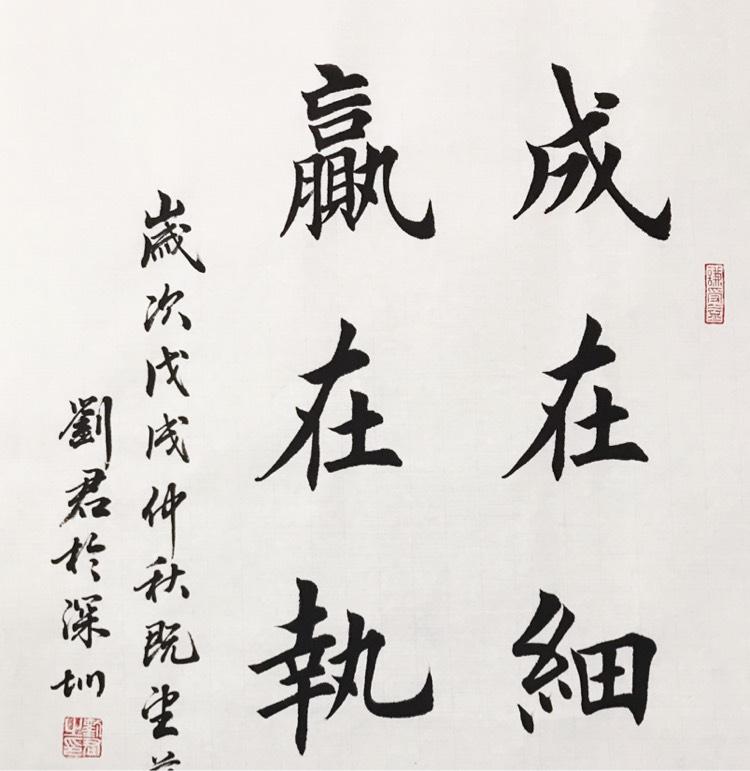 成在細
贏在執
歲次戊戌仲秋既望
劉君於深圳